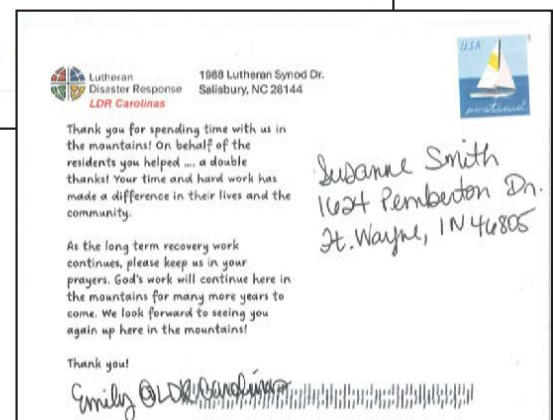 Lutheran
Disaster Response
LDR Carolinas
1988 Lutheran Synod Dr.
Salisbury, NC 28144
USA
postcard
Thank you for spending time with us in
the mountains! On behalf of the
residents you helped .... a double
thanks! Your time and hard work has
made a difference in their lives and the
community.
As the long term recovery work
continues, please keep us in your
prayers. God's work will continue here in
the mountains for many more years to
come. We look forward to seeing you
again up here in the mountains!
Thank you!
Emily @LDR Carolinas
Susanne Smith
1624 Pemberton Dr.
Ft. Wayne, IN 46805